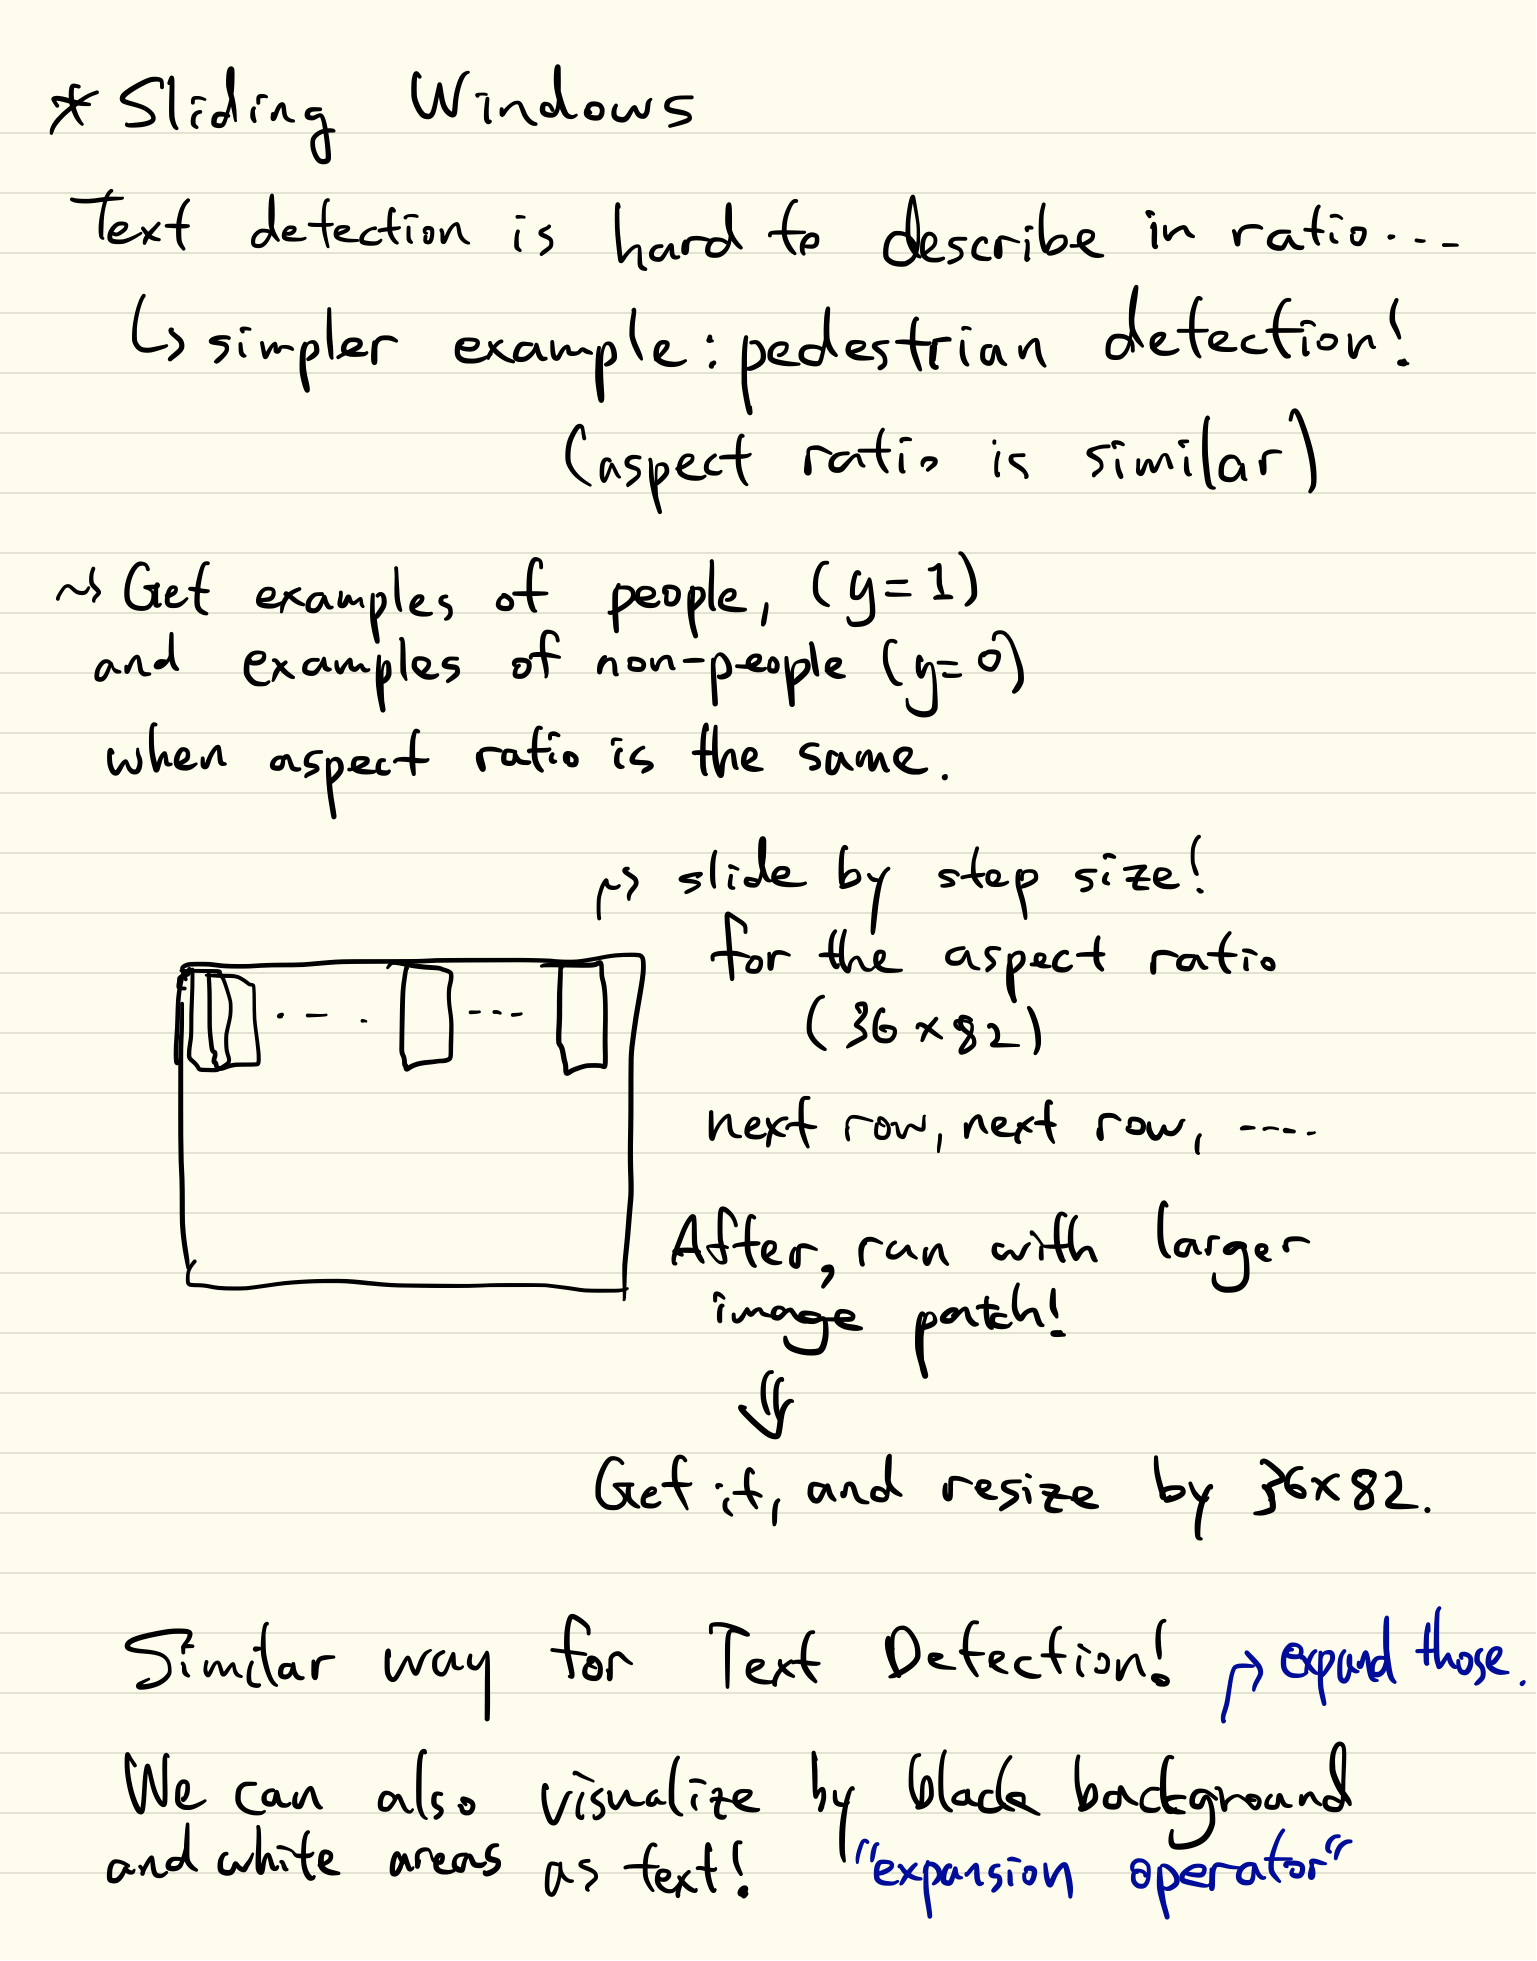 * Sliding Windows
Text detection is hard to describe in ratio...
↳ simpler example: pedestrian detection!
(aspect ratio is similar)
~> Get examples of people, (y=1)
and examples of non-people (y=0)
when aspect ratio is the same.
~> slide by step size!
for the aspect ratio
(36×82)
next row, next row, ....
After, run with larger
image patch!
⇓
Get it, and resize by 36×82.
Similar way for Text Detection! → expand those.
We can also visualize by black background
and white areas as text! "expansion operator"